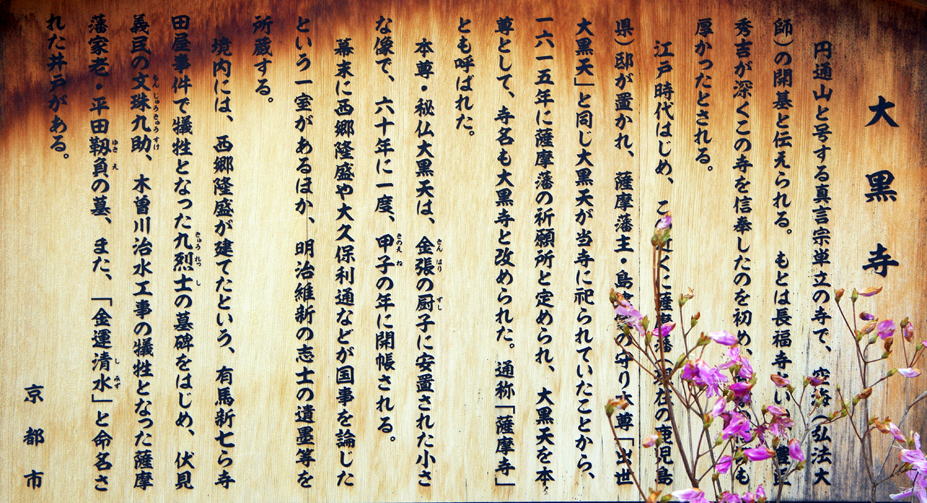 大黒寺
円通山と号する真言宗単立の寺で、空海（弘法大
師）の開基と伝えられる。もとは長福寺といい、豊臣
秀吉が深くこの寺を信奉したのを初め、も
厚かったとされる。
江戸時代はじめ、こ近くに薩摩藩（現在の鹿児島
県）邸が置かれ、薩摩藩主・島の守り本尊「出世
大黒天」と同じ大黒天が当寺に祀られていたことから、
一六一五年に薩摩藩の祈願所と定められ、大黒天を本
尊として、寺名も大黒寺と改められた。通称「薩摩寺」
とも呼ばれた。
本尊・秘仏大黒天は、金張の厨子に安置された小さ
な像で、六十年に一度、甲子の年に開帳される。
幕末に西郷隆盛や大久保利通などが国事を論じた
という一室があるほか、明治維新の志士の遺墨等を
所蔵する。
境内には、西郷隆盛が建てたという、有馬新七ら寺
田屋事件で犠牲となった九烈士の墓碑をはじめ、伏見
義民の文珠九助、木曽川治水工事の犠牲となった薩摩
藩家老・平田靱負の墓、また、「金運清水」と命名さ
れた井戸がある。
京都市